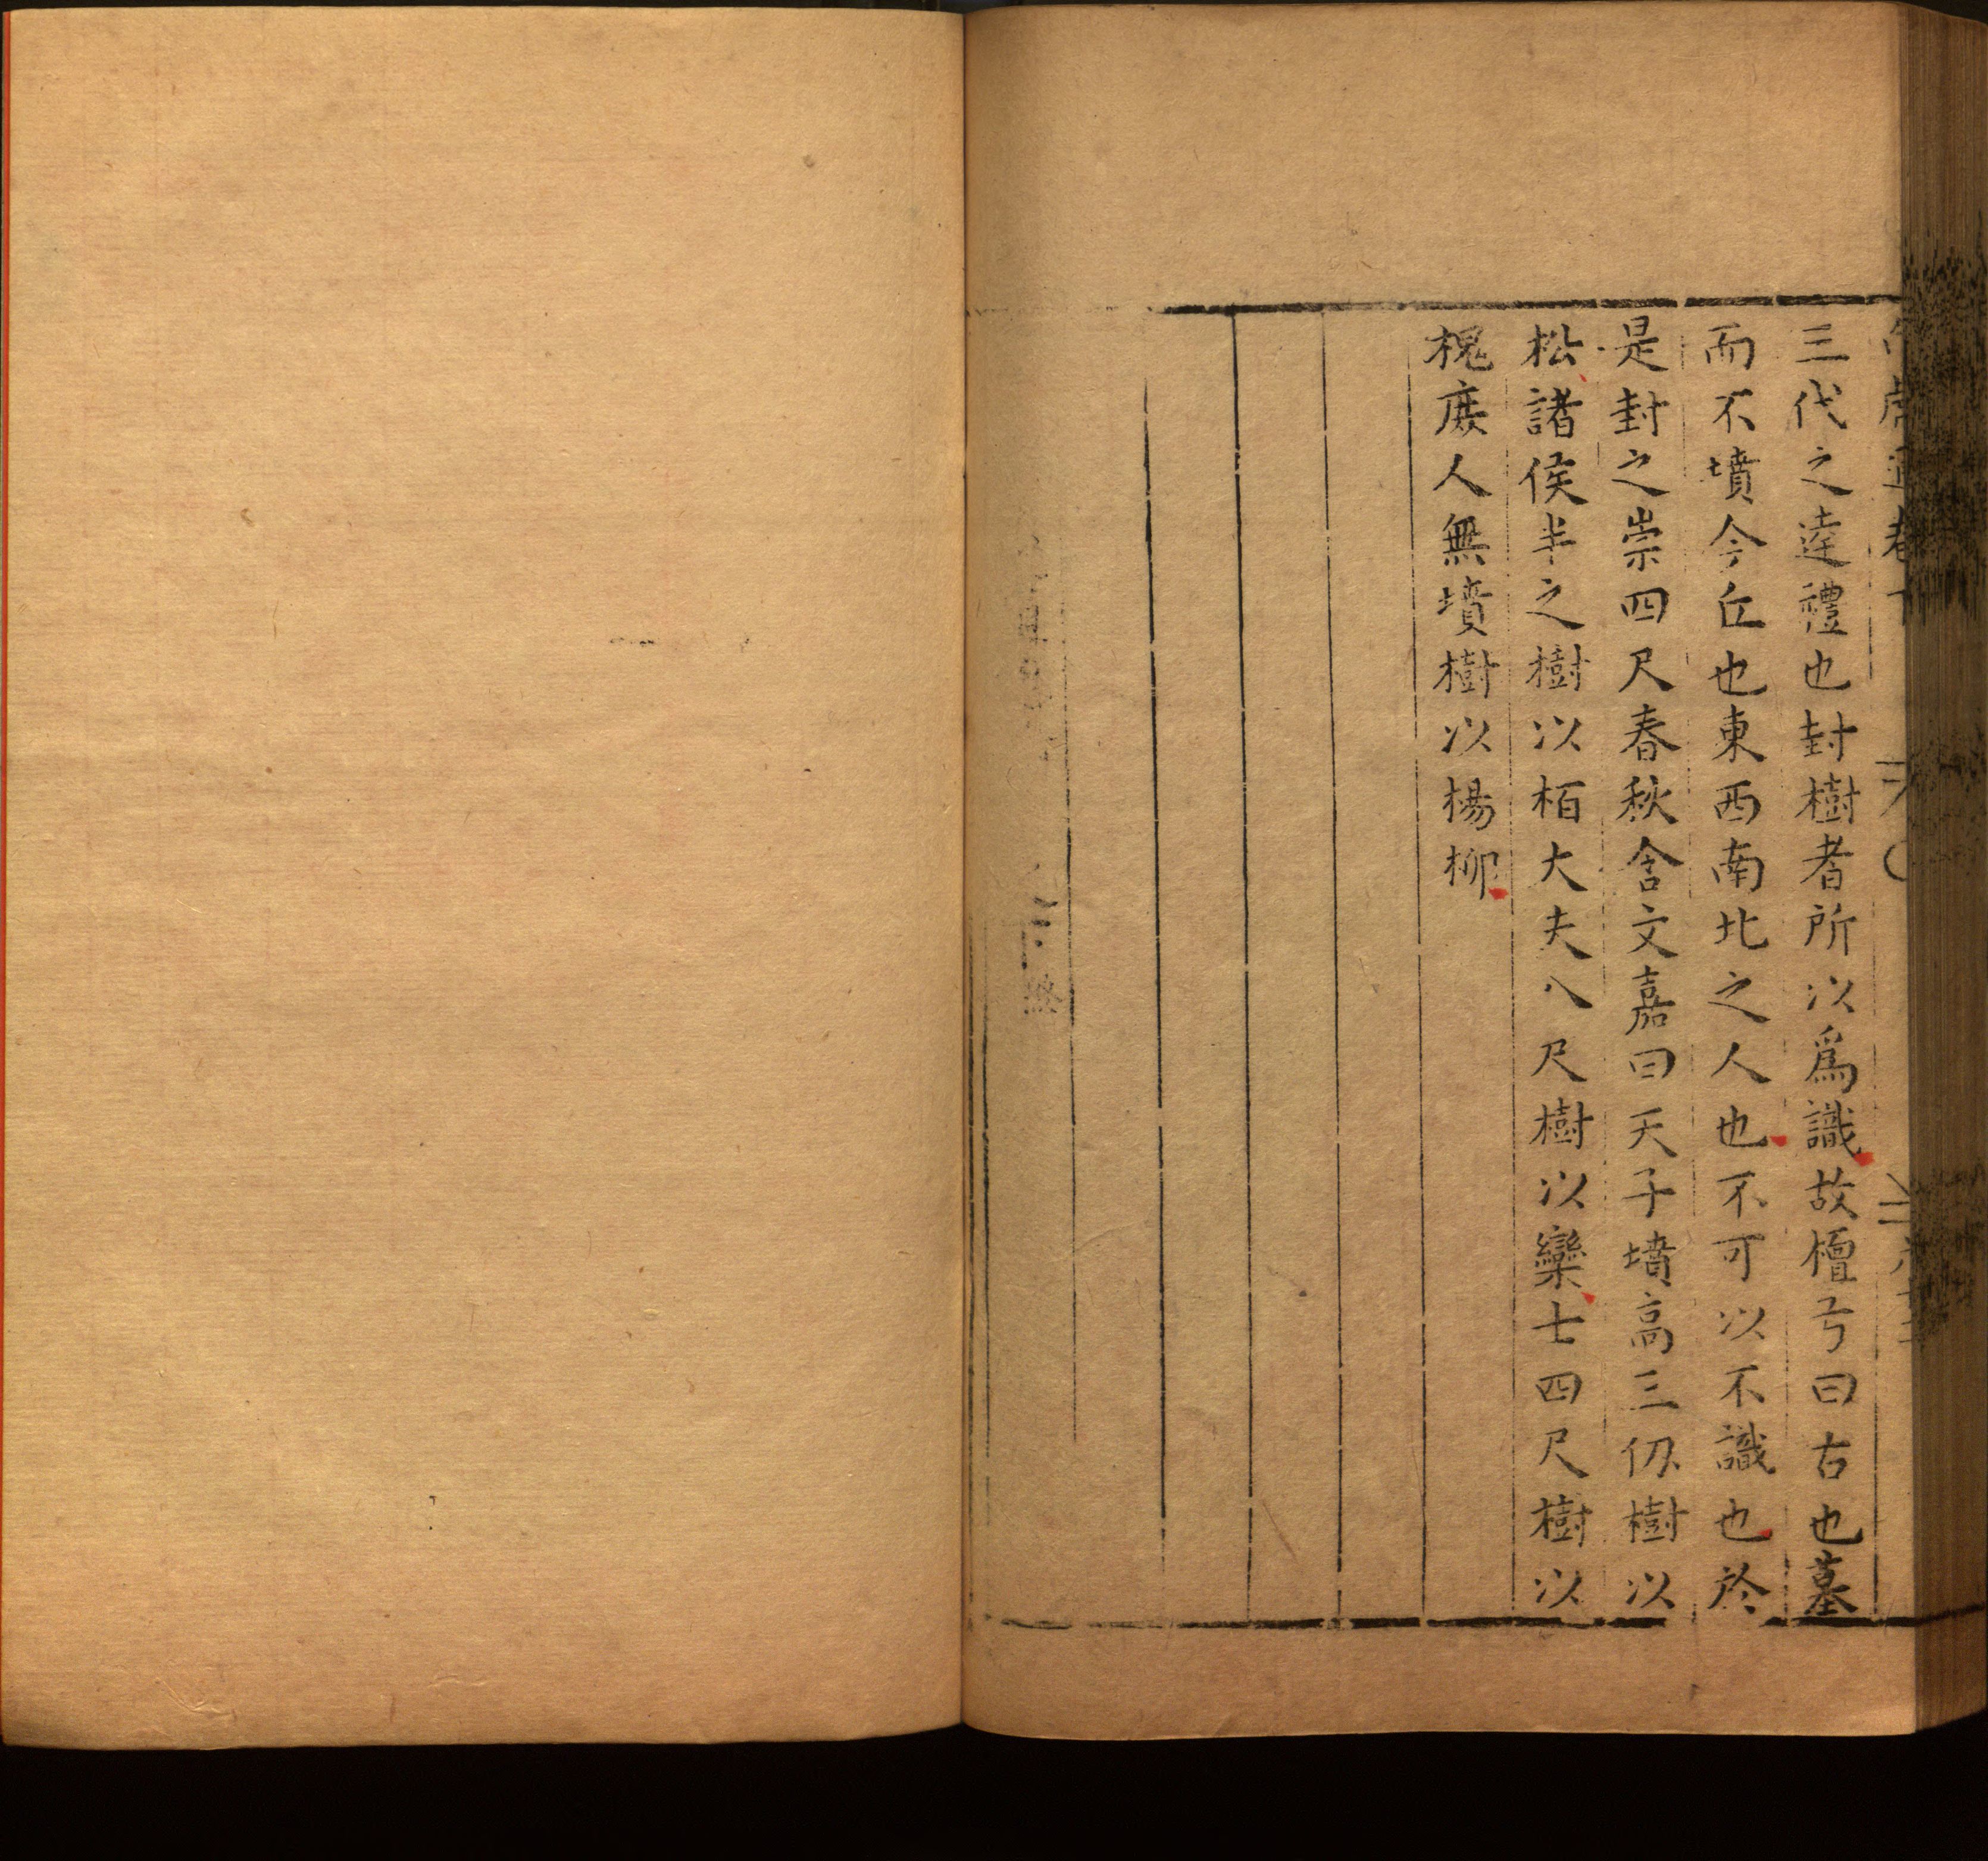 三代之逹禮也封樹者所以爲識故檀弓曰古也墓
而不墳今丘也東西南北之人也不可以不識也於
是封之崇四尺春秋含文嘉曰天子墳高三仞樹以
松諸侯半之樹以栢大夫八尺樹以欒士四尺樹以
槐庻人無墳樹以楊柳